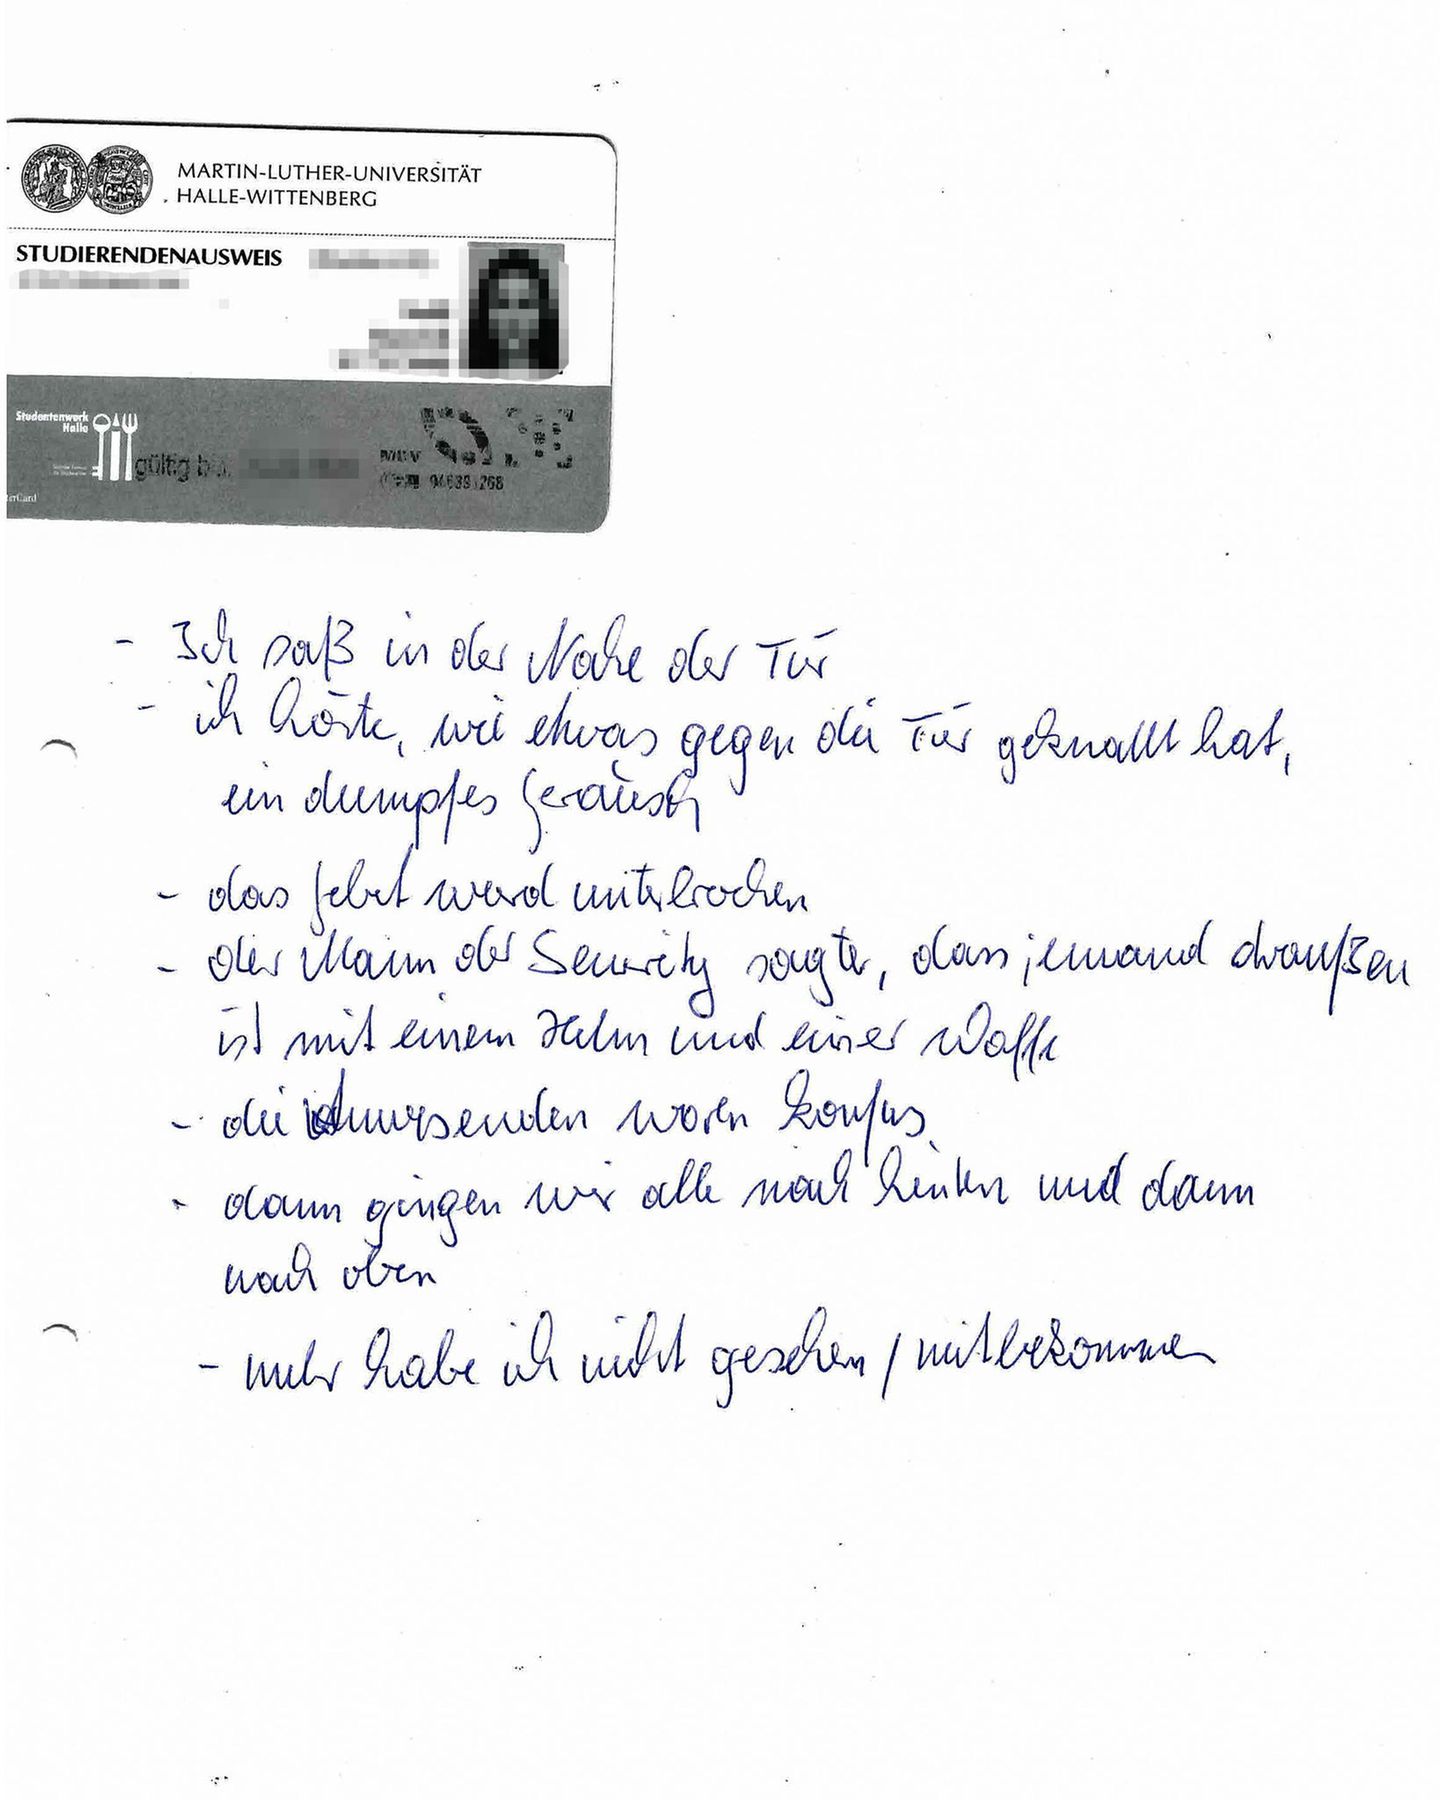 MARTIN-LUTHER-UNIVERSITÄT
HALLE-WITTENBERG
STUDIERENDENAUSWEIS
Studentenwerk
Halle
gültig bis
terCard
- Ich saß in der Nähe der Tür
- ich hörte, wie etwas gegen die Tür geknallt hat,
ein dumpfes Geräusch
- das Gebet werd unterbrochen
- der Mann der Security sagte, dass jemand draußen
ist mit einem Helm und einer Waffe
- die Anwesenden waren konfus
- dann gingen wir alle nach hinten und dann
nach oben
- mehr habe ich nicht gesehen / mitbekommen